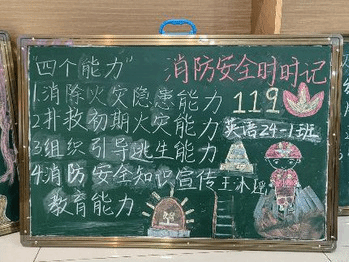 "四个能力"
消防安全时时记
1.消除火灾隐患能力
119
2.扑救初期火灾能力
英语24-1班
3.组织引导逃生能力
4.消防安全知识宣传
教育能力